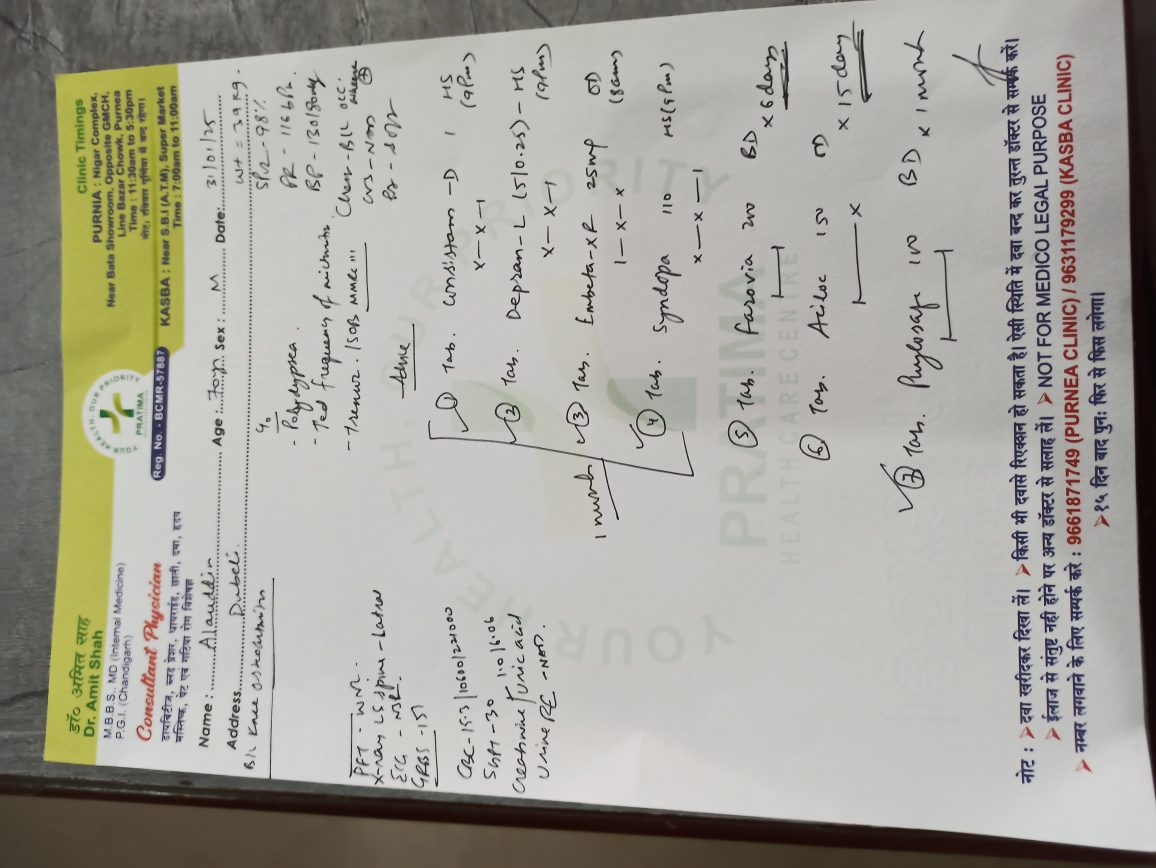 डॉ० अमित साह
Dr. Amit Shah
M.B.B.S., MD (Internal Medicine)
P.G.I. (Chandigarh)
Consultant Physician
डायबिटीज, ब्लड प्रेशर, थायराईड, छाती, दमा, हृदय
मस्तिष्क, पेट एवं गठिया रोग विशेषज्ञ
YOUR HEALTH, OUR PRIORITY
PRATIMA
Reg. No. - BCMR-57887
Clinic Timings
PURNIA : Nigar Complex,
Near Bata Showroom, Opposite GMCH,
Line Bazar Chowk, Purnea
Time : 11:30am to 5:30pm
नोट: रविवार पूर्णिया में बन्द रहेगा।
KASBA : Near S.B.I (A.T.M), Super Market
Time : 7:00am to 11:00am
Name : Alauddin Age : 70y Sex : M Date: 31/01/25
Address Dubeli Wt = 39 Kg.
B/L Knee
SPO2 - 98%
PR - 116
BP - 130/80
- Polydypsea
- frequency of
- Chest - B/L occ.
CVS - NAD
PFT - WNL
X-ray LS Spine -
ECG - NSR
GRBS - 151
CBC - 15.3/10600/221000
SGPT - 30
Creatinine/Uric acid 1.0/6.06
Urine RE - NAD.
Advice
1 month
① Tab. Consistam-D 1 HS
x-x-1 (9Pm)
② Tab. Depsan-L (5/0.25) - HS
x-x-1 (9Pm)
③ Tab. Embeta-XR 25mg OD
1-x-x (8am)
④ Tab. Syndopa 110 HS (9Pm)
x-x-1
⑤ Tab. Farovia 200 BD
x 6 days
⑥ Tab. Aciloc 150 OD
x 15 days
⑦ Tab. 100 BD x 1 month
YOUR HEALTH, OUR PRIORITY
PRATIMA
HEALTHCARE CENTRE
नोट : ➤ दवा खरीदकर दिखा लें। ➤ किसी भी दवासे रिएक्शन हो सकता है। ऐसी स्थिति में दवा बन्द कर तुरन्त डॉक्टर से सम्पर्क करें।
➤ ईलाज से संतुष्ट नही होने पर अन्य डॉक्टर से सलाह लें। ➤ NOT FOR MEDICO LEGAL PURPOSE
➤ नम्बर लगवाने के लिए सम्पर्क करे : 9661871749 (PURNEA CLINIC) / 9631179299 (KASBA CLINIC)
➤ १५ दिन बाद पुनः फिर से फिस लगेगा।